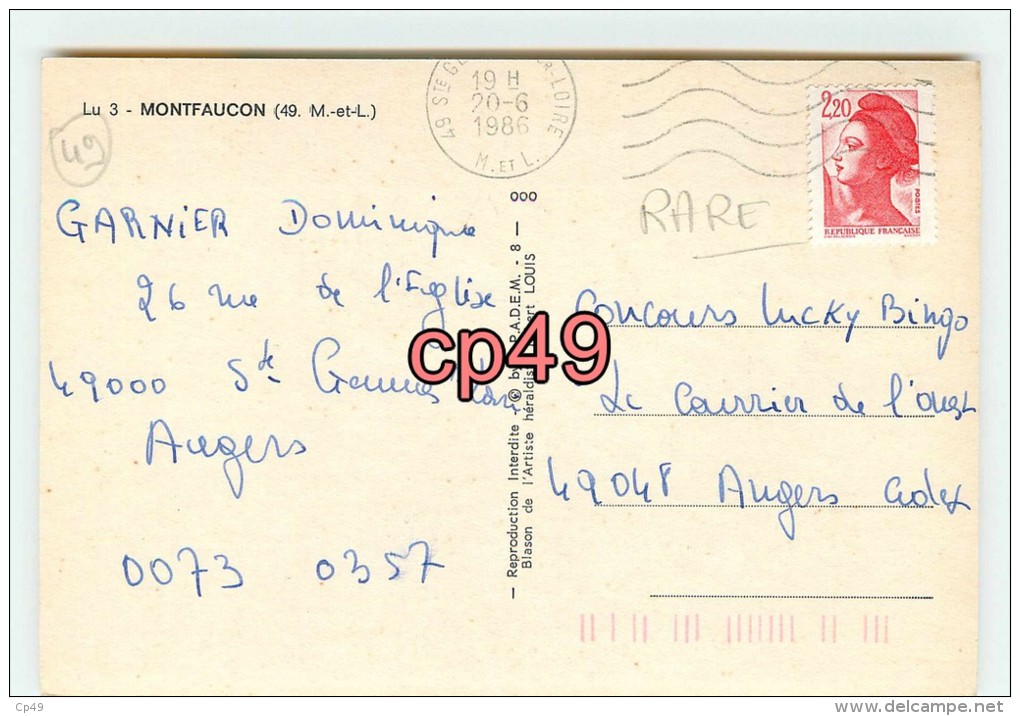 Lu 3 - MONTFAUCON (49. M.-et-L.)
49
49 STE GE R-LOIRE
19 H
20-6
1986
M. ET L.
2,20
POSTES
REPUBLIQUE FRANÇAISE
RARE
GARNIER Dominique
26 rue de l'Eglise
49000 Ste Gemmes
Angers
0073 0357
Concours Lucky Bingo
Le Courrier de l'ouest
49048 Angers Cedex
cp49
— Reproduction Interdite - © by P.A.D.E.M. - 8 — 000
Blason de l'Artiste héraldis ert LOUIS
Cp49
www.delcampe.net